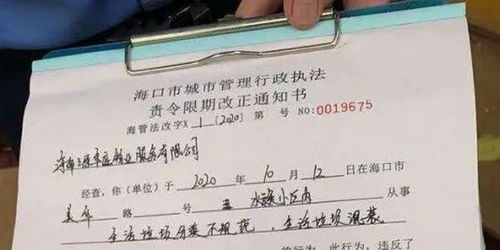 海口市城市管理行政执法
责令限期改正通知书
海管法改字X 1 [2020] 第 号 NO:0019675
物业服务有限公司
经查，你（单位）于 2020 年 10 月 12 日在海口市
路 号 小区内 从事
生活垃圾分类不规范，生活垃圾混装
行为，此行为，违反了